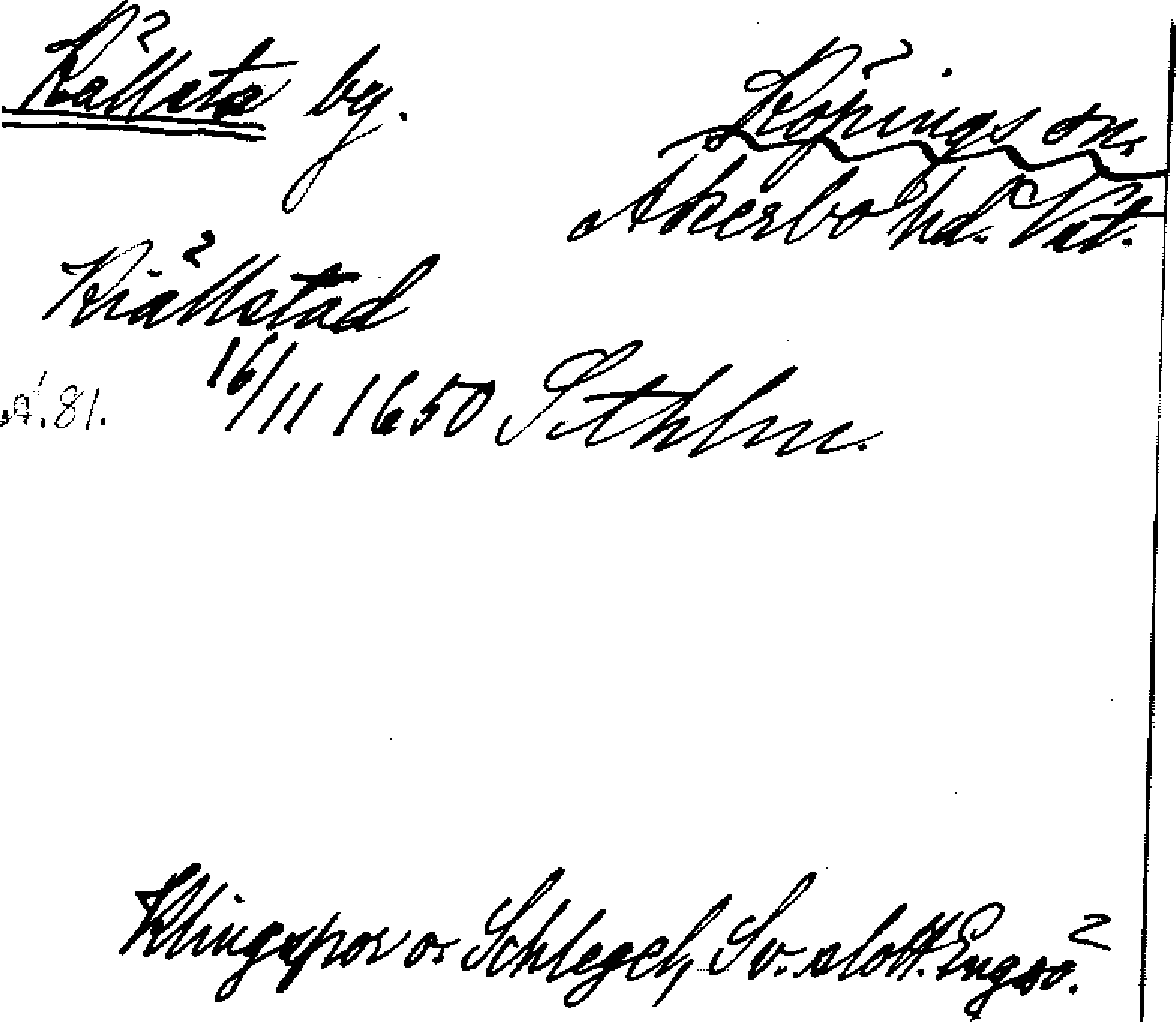 Källsta by. Köpings sn.
Åkerbo hd. Vstm.
Kiällstad
16/11 1650 Sthlm.
A. 81.
Klingspor o. Schlegel, Sv. slott. Engsö.